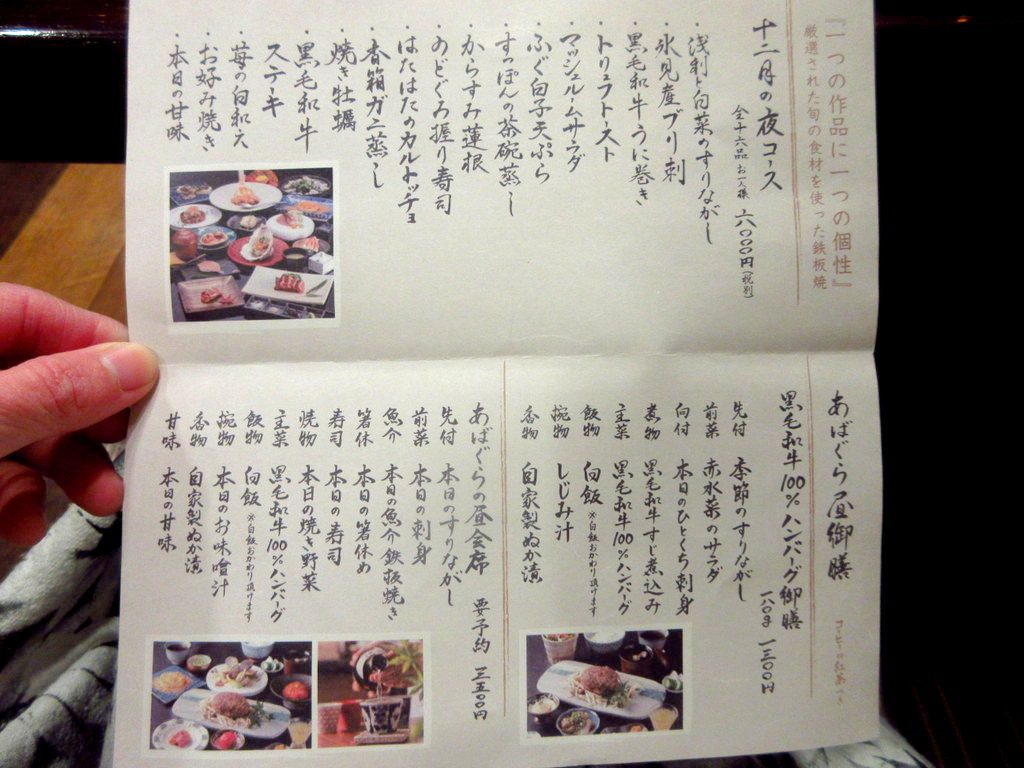 『一つの作品に一つの個性』
厳選された旬の食材を使った鉄板焼
十二月の夜コース
全十六品 お一人様 六〇〇〇円(税別)
・浅利と白菜のすりながし
・氷見産ブリ刺
・黒毛和牛うに巻き
・トリュフトースト
・マッシュルームサラダ
・ふぐ白子天ぷら
・すっぽんの茶碗蒸し
・からすみ蓮根
・のどぐろ握り寿司
・はたはたのカルトッチョ
・香箱ガニ蒸し
・焼き牡蠣
・黒毛和牛
ステーキ
・苺の白和え
・お好み焼き
・本日の甘味
あばぐら昼御膳
コーヒーor紅茶つき
黒毛和牛100%ハンバーグ御膳
一八〇g 一三〇〇円
先付 季節のすりながし
前菜 赤水菜のサラダ
向付 本日のひとくち刺身
煮物 黒毛和牛すじ煮込み
主菜 黒毛和牛100%ハンバーグ
飯物 白飯 ※白飯おかわり頂けます
椀物 しじみ汁
香物 自家製ぬか漬
あばぐらの昼会席 要予約 三五〇〇円
先付 本日のすりながし
前菜 本日の刺身
魚介 本日の魚介鉄板焼き
箸休 本日の箸休め
寿司 本日の寿司
焼物 本日の焼き野菜
主菜 黒毛和牛100%ハンバーグ
飯物 白飯 ※白飯おかわり頂けます
椀物 本日のお味噌汁
香物 自家製ぬか漬
甘味 本日の甘味